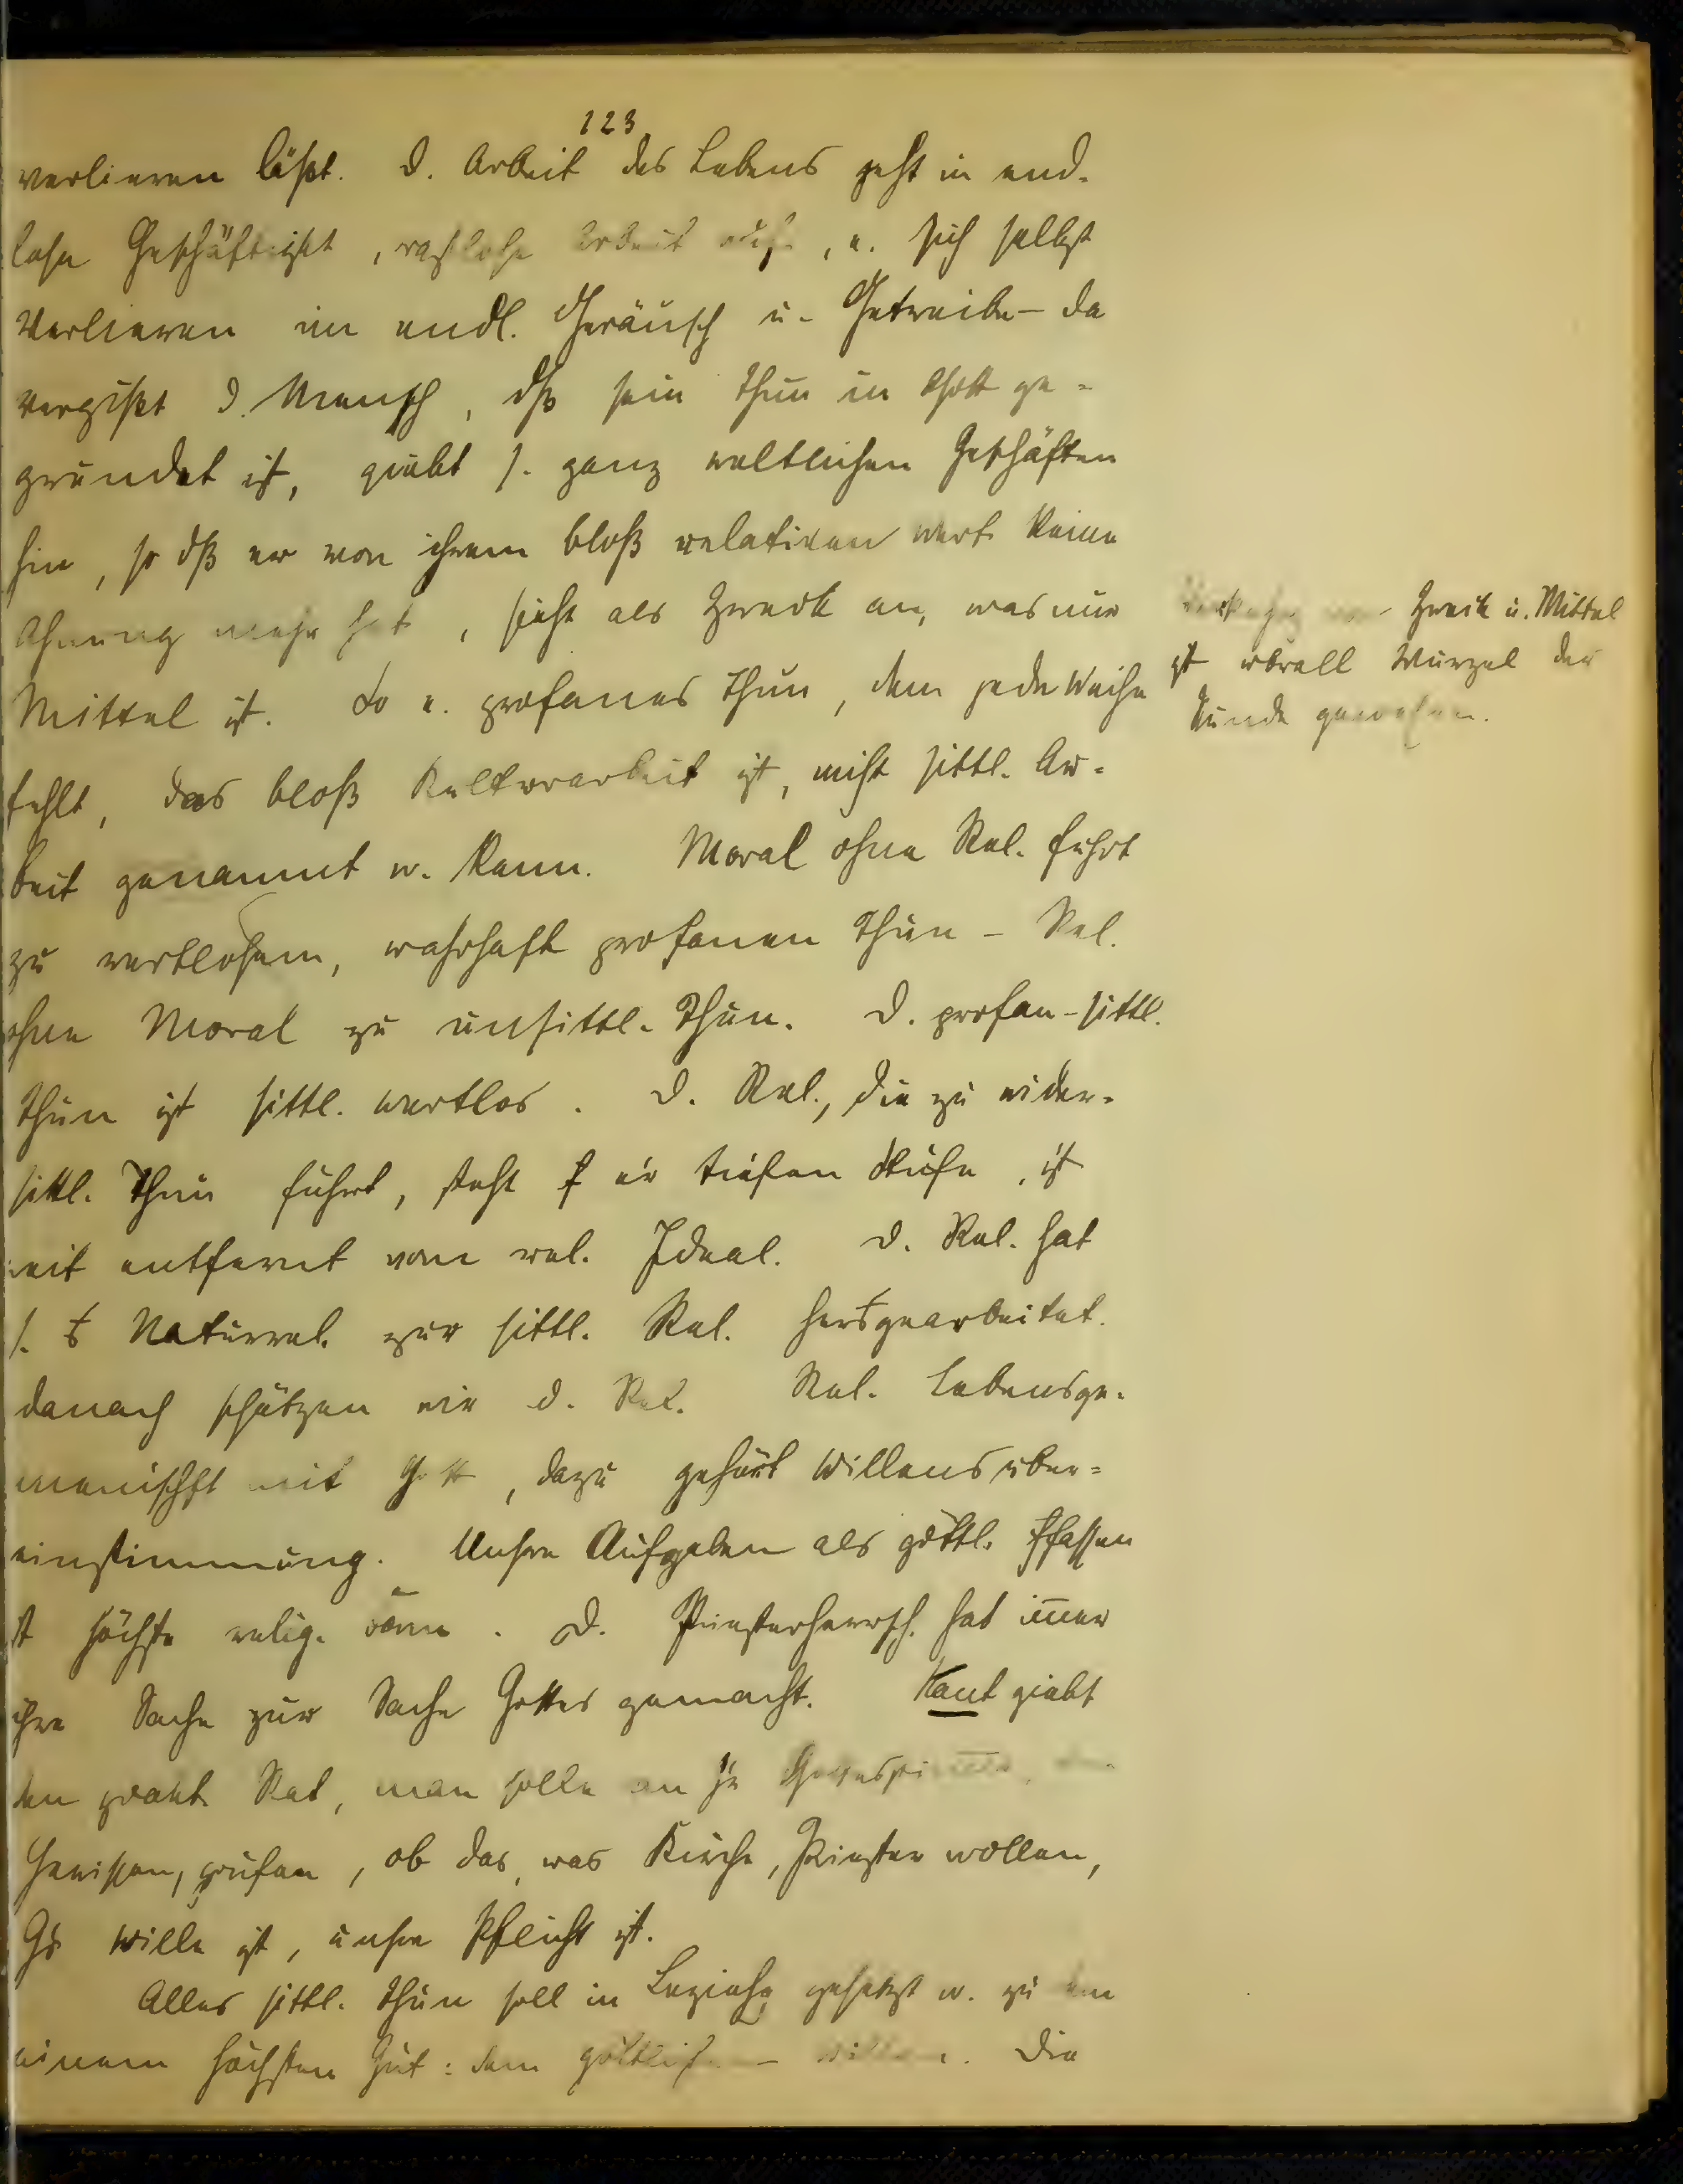 123
verlieren läßt. D. Arbeit des Lebens geht in end-
lose Geschäftigkt, rastlose Arbeit auf, u. sich selbst
Verlieren im endl. Geräusch u. Getreibe - da
vergißt d. Mensch, dß sein Thun in Gott ge-
gründet ist, giebt s. ganz weltlichen Geschäften
hin, so dß er von ihrem bloß relativen Wert keine
Ahnung mehr hat, sieht als Zweck an, was nur
Mittel ist. So e. profanes Thun, dem jede Weihe
fehlt, das bloß Kulturarbeit ist, nicht sittl. Ar-
beit genannt w. kann. Moral ohne Rel. führt
zu wertlosem, wahrhaft profanen Thun - Rel.
ohne Moral zu unsittl. Thun. D. profan-sittl.
Thun ist sittl. wertlos. D. Rel., die zu wider-
sittl. Thun führt, steht f er tiefen Stufe, ist
weit entfernt vom rel. Ideal. D. Rel. hat
s. Naturrel. zur sittl. Rel. gearbeitet.
danach schätzen wir d. Rel. Rel. Lebensge-
meinschft mit Gott, dazu gehört Willensüber-
einstimmung. Unsre Aufgaben als göttl. fassen
ist höchste relig. D. Priesterherrsch. hat im̄er
ihre Sache zur Sache Gottes gemacht. Kant giebt
den prakt. Rat, man solle an
Gewissen, prüfen, ob das, was Kirche, Priester wollen,
Gs Wille ist, unsre Pflicht ist.
Alles sittl. Thun soll in Beziehg gesetzt w. zu dem
einem höchsten Gut: dem göttlichen - Willen. Die
Zweck u. Mittel
ist überall Wurzel der
Sünde gewesen.